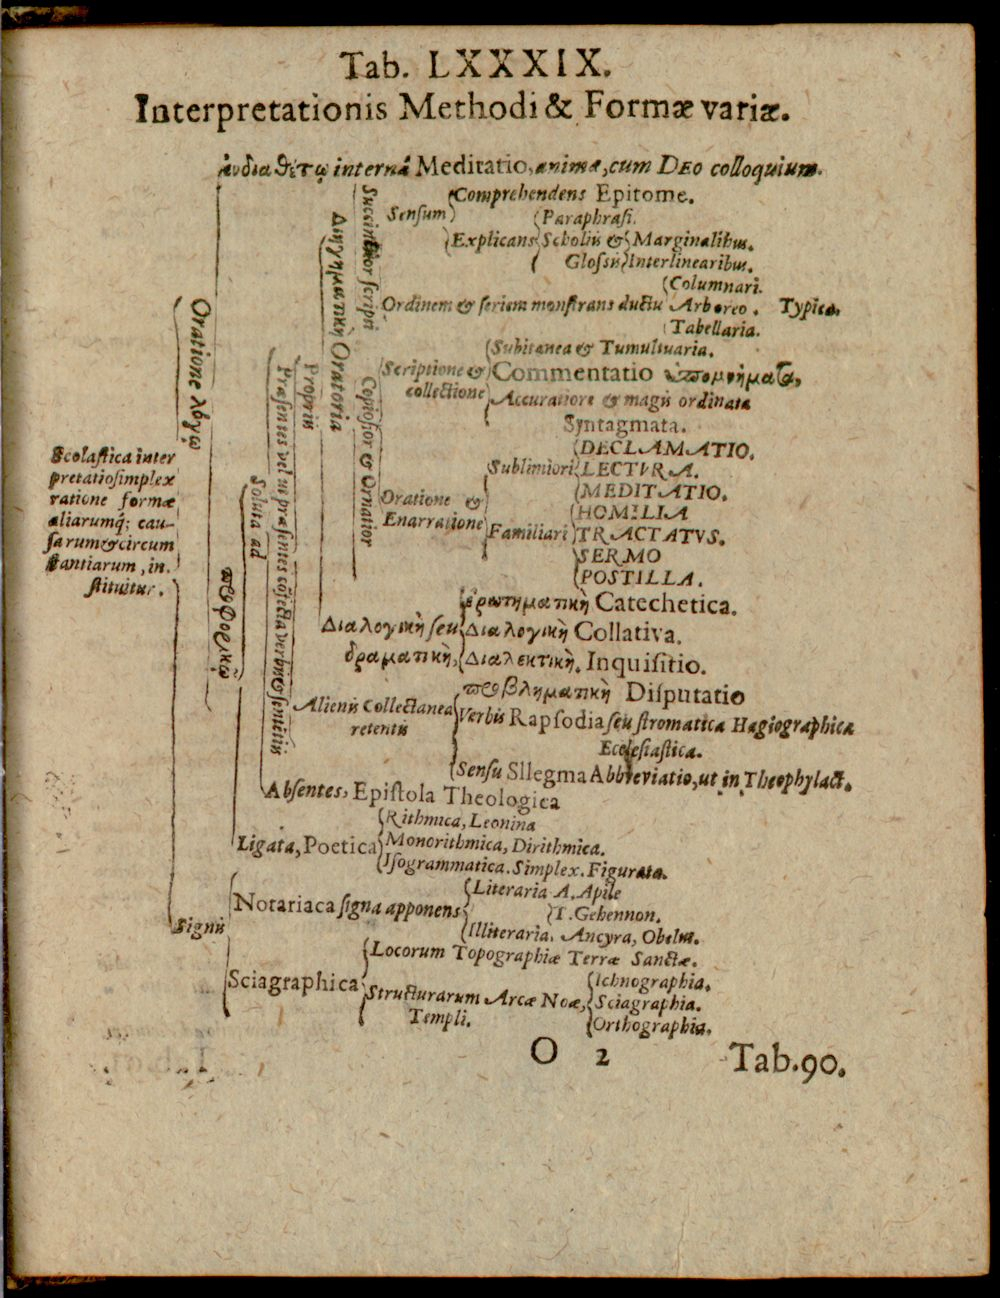 Tab. LXXXIX.
Interpretationis Methodi & Formæ variæ.
ἐνδιαθέτῳ internâ Meditatio, animæ, cum DEO colloquium.
Succinctior scripti
Sensum
Comprehendens Epitome.
Explicans
Paraphrasi.
Scholiis &
Glossis
Marginalibus.
Interlinearibus.
Ordinem & seriem monstrans ductu
Columnari.
Arboreo. Typica.
Tabellaria.
Διηγηματικὴ Oratoria
Oratione λόγῳ
Propriis
Præsentes vel ut præsentes cōjecta verbis & sentētiis
Copiosior & Ornatior
Scriptione &
collectione
Subitanea & Tumultuaria.
Commentatio ὑπομνήματα,
Accuratiore & magis ordinata
Syntagmata.
Scolastica inter
pretatio simplex
ratione formæ
aliarumq́; cau-
sarum & circum
stantiarum, in-
stituitur.
Soluta ad
προφορικῷ
Oratione &
Enarratione
Sublimiori
DECLAMATIO.
LECTVRA.
MEDITATIO.
Familiari
HOMILIA
TRACTATVS.
SERMO
POSTILLA.
Διαλογικὴ seu
δραματικὴ,
ἐρωτηματικὴ Catechetica.
Διαλογικὴ Collativa.
Διαλεκτικὴ. Inquisitio.
προβληματικὴ Disputatio
Alienis Collectanea
retentis
Verbis Rapsodia seu stromatica Hagiographica
Ecclesiastica.
Sensu Sllegma Abbreviatio, ut in Theophylact.
Absentes, Epistola Theologica
Ligata, Poetica
Rithmica, Leonina
Monorithmica, Dirithmica.
Isogrammatica. Simplex. Figurata.
Signis
Notariaca signa apponens
Literaria A. Apile
T. Gehennon.
Illiteraria. Ancyra, Obelus.
Sciagraphica
Locorum Topographiæ Terræ Sanctæ.
Structurarum Arcæ Noæ,
Templi.
Ichnographia.
Sciagraphia.
Orthographia.
O 2 Tab. 90.